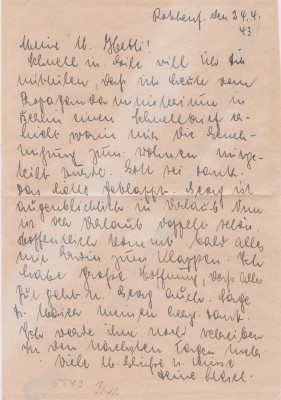 den 24.4.
43
Meine l. !
Schnell in Eile will ich Dir
mitteilen, daß ich heute vom
Propagandaministerium in
Berlin einen Schnellbrief er-
hielt worin mir die Geneh-
migung zum Wohnen mitge-
teilt wurde. Gott sei Dank.
Das hätte geklappt. Georg ist
augenblicklich in Urlaub. Nun
ist der Urlaub doppelt schön.
Hoffentlich kommt bald alles
mit zum klappen. Ich
habe große Hoffnung, daß alles
gut geht u. Georg auch. Sage
meinen Dank.
Ich werde ihm noch schreiben
in den nächsten Tagen mehr.
Viele l. Grüße u. Küsse
Deine